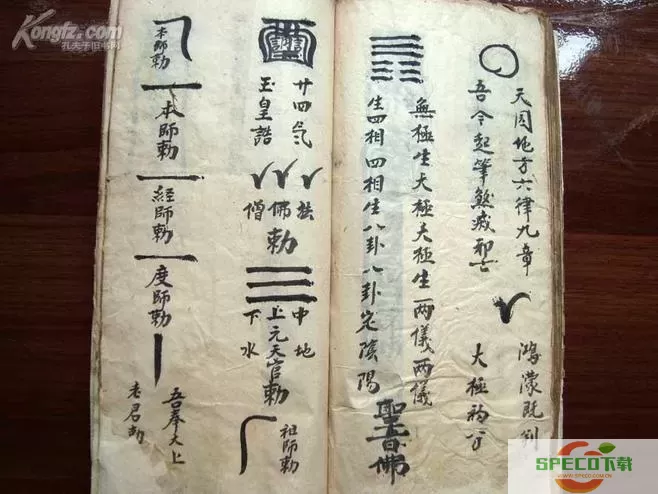 天圓地方六律九章
吾今起筆煞滅
鴻蒙既判
大極初分
無極生大極大極生兩儀兩儀
生四相四相生八卦八卦定陰陽
佛
廿四氣
玉皇誥
佛
僧
勅
中地
上元天官勅
下水
祖師勅
本師勅
本師勅
経師勅
度師勅
吾奉大上
老君勅
Kongfz.com
孔夫子旧书网
SPECO下载